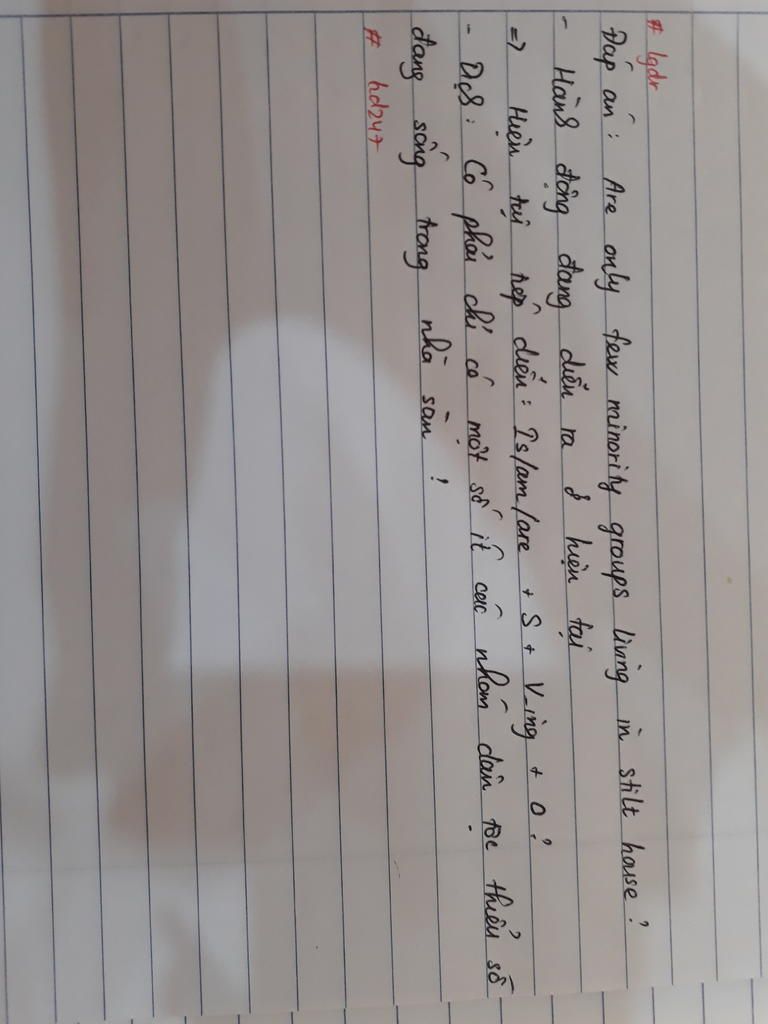 # lgdr
Đáp án : Are only few minority groups living in stilt house ?
- Hành động đang diễn ra ở hiện tại
=> Hiện tại tiếp diễn : Is/am/are + S + V_ing + O ?
- Dịch : Có phải chỉ có một số ít các nhóm dân tộc thiểu số
đang sống trong nhà sàn ?
# hd247